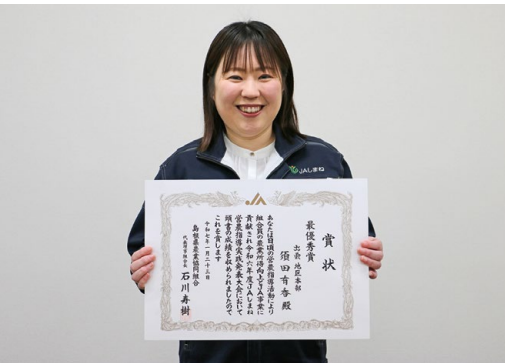 JAしまね
賞状
最優秀賞
出雲地区本部
須田有香殿
あなたは日頃の営農指導活動により
組合員の農業所得向上とJA事業に
貢献され令和六年度JAしまね
営農指導実践発表大会において
頭書の成績を収められましたので
これを賞します
令和七年一月二十三日
島根県農業協同組合
代表理事組合長
石川寿樹